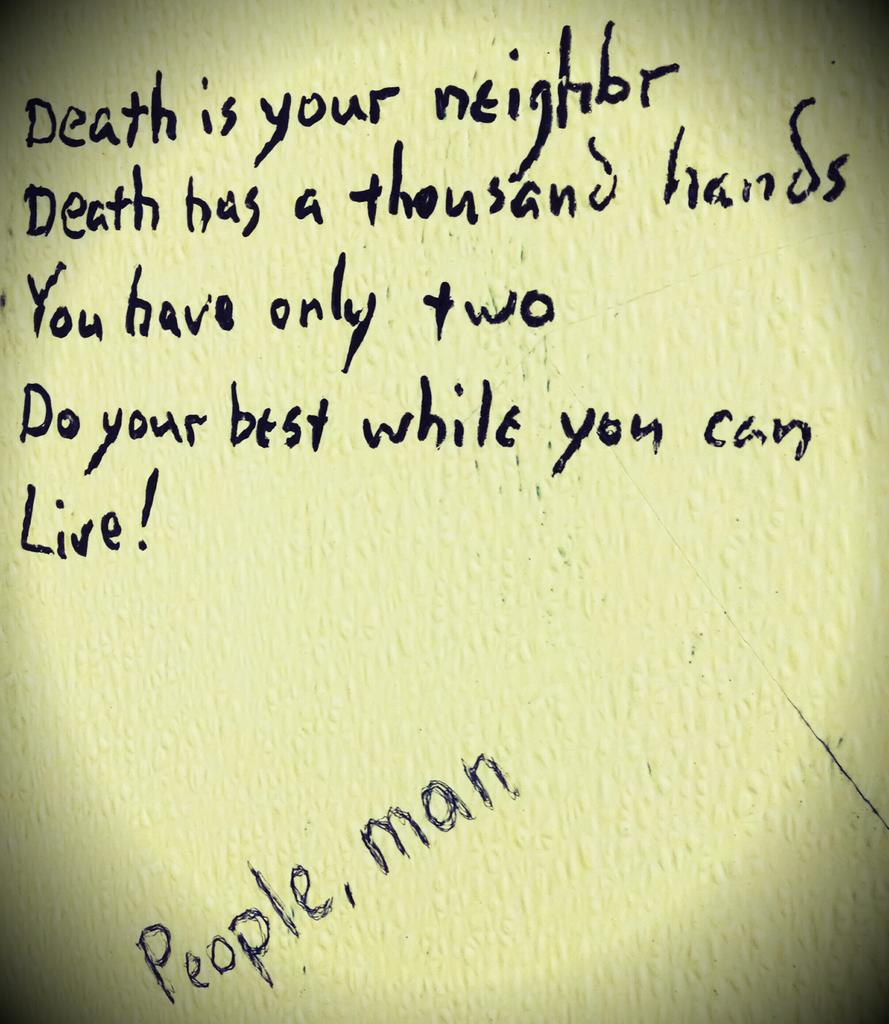 Death is your neighbr
Death has a thousand hands
You have only two
Do your best while you can
Live!
People, man